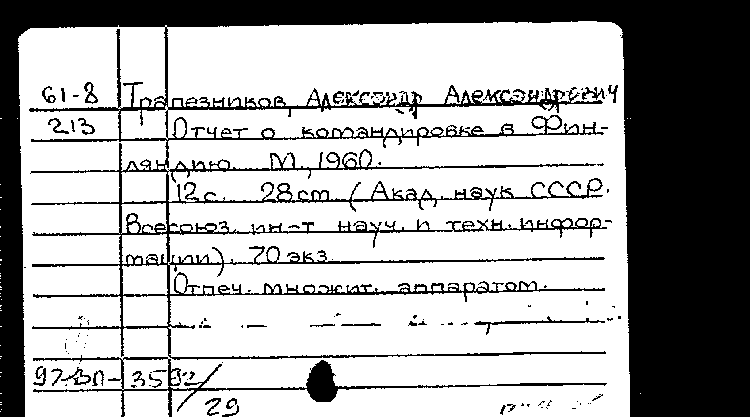 61-8 Трапезников, Александр Александрович
213 Отчет о командировке в Фин-
ляндию. М., 1960.
12 с. 28 см (Акад. наук СССР.
Всесоюз. ин-т науч. и техн. инфор-
мации). 70 экз.
Отпеч. множит. аппаратом.
97-ВП- 3592/29